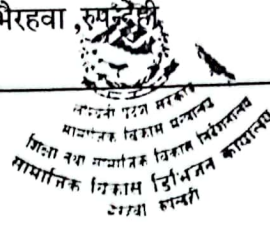 भैरहवा ,रुपन्देही
प्रदेश सरकार
सामाजिक विकास मन्त्रालय
शिक्षा तथा सामाजिक विकास निर्देशनालय
सामाजिक विकास डिभिजन कार्यालय
रुपन्देही